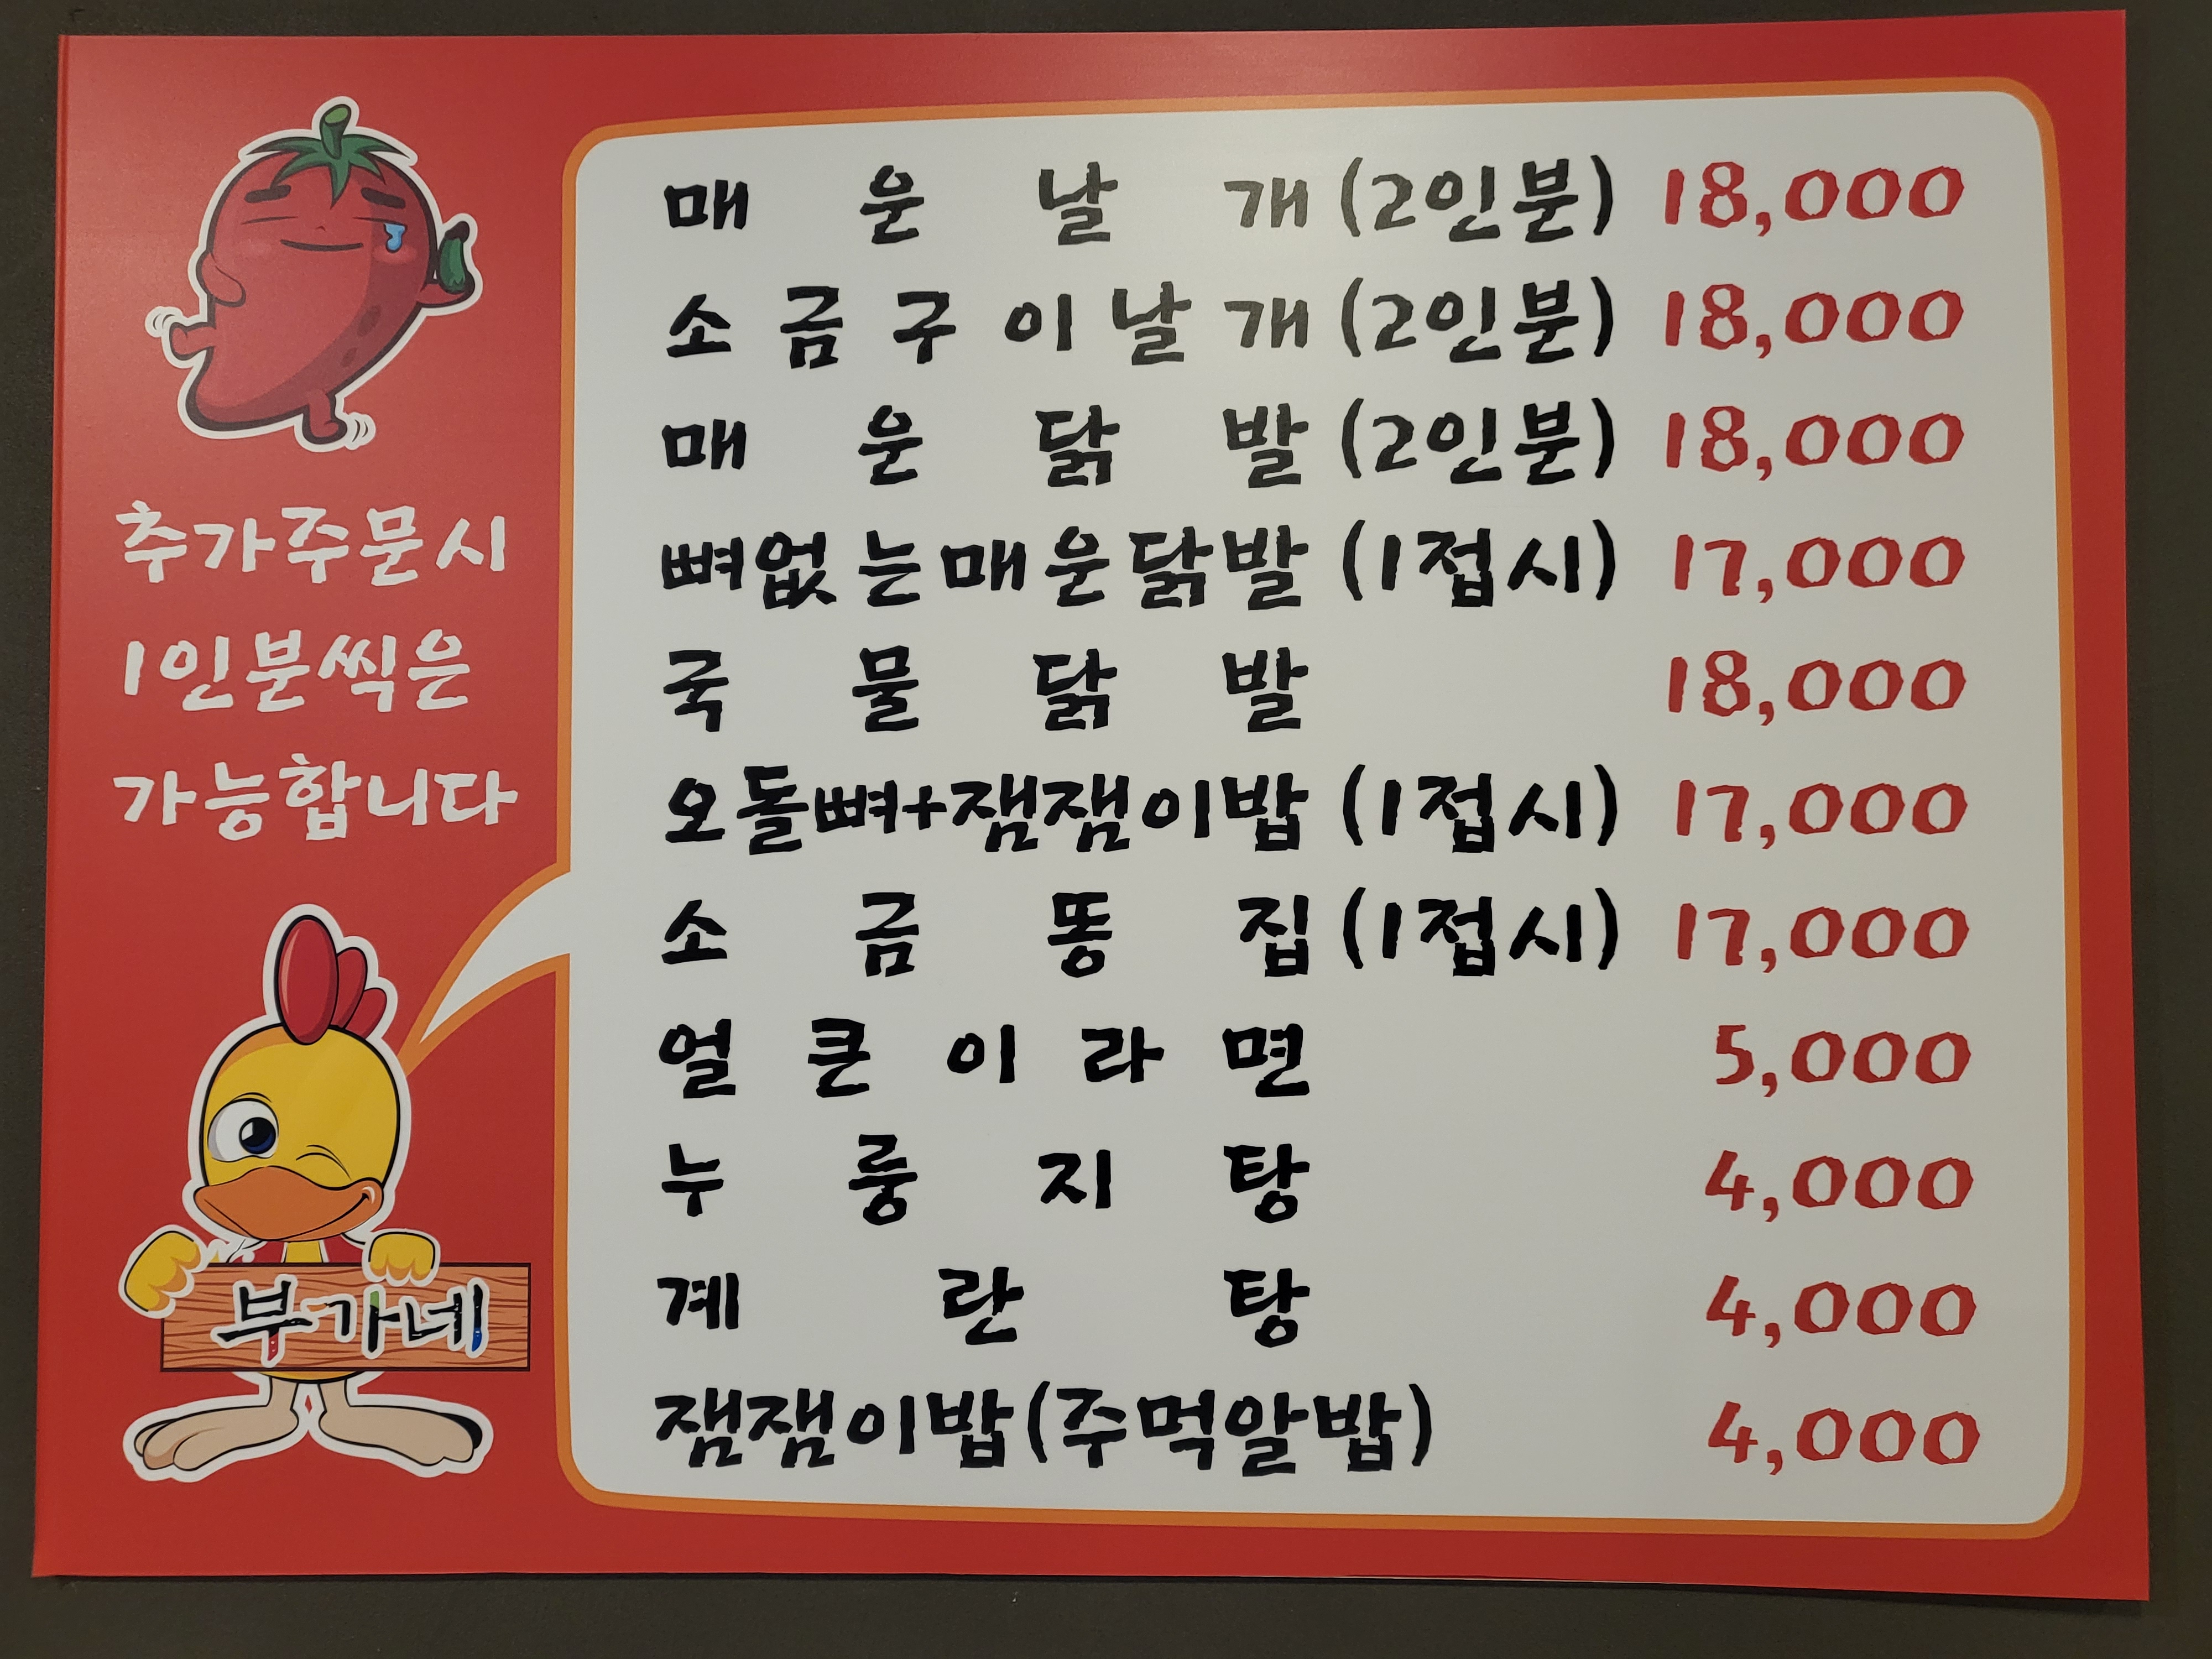 추가주문시
1인분씩은
가능합니다
부가네
매운날개(2인분) 18,000
소금구이날개(2인분) 18,000
매운닭발(2인분) 18,000
뼈없는매운닭발(1접시) 17,000
국물닭발 18,000
오돌뼈+잼잼이밥(1접시) 17,000
소금똥집(1접시) 17,000
얼큰이라면 5,000
누룽지탕 4,000
계란탕 4,000
잼잼이밥(주먹알밥) 4,000